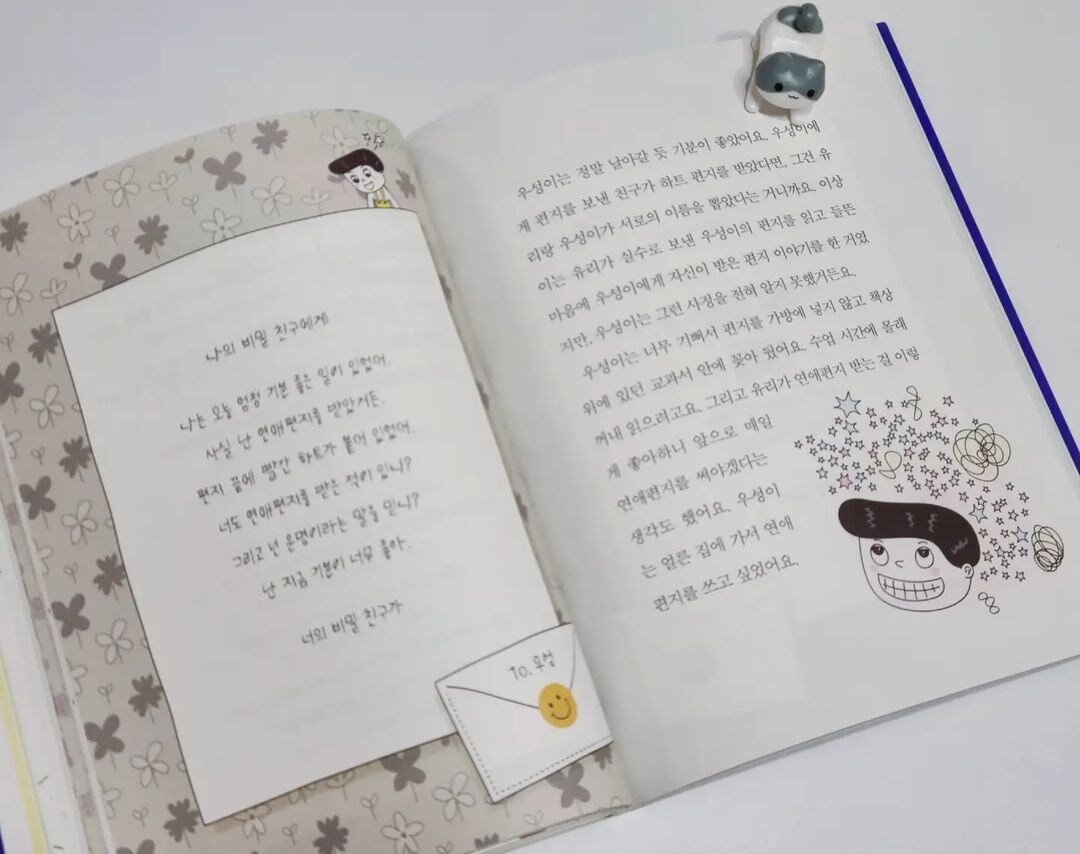 나의 비밀 친구에게
나는 오늘 엄청 기분 좋은 일이 있었어.
사실 난 연애편지를 받았거든.
편지 끝에 빨간 하트가 붙어 있었어.
너도 연애편지를 받은 적이 있니?
그리고 넌 운명이라는 말을 믿니?
난 지금 기분이 너무 좋아.
너의 비밀 친구가
TO. 우성
우성이는 정말 날아갈 듯 기분이 좋았어요. 우성이에
게 편지를 보낸 친구가 하트 편지를 받았다면, 그건 유
리랑 우성이가 서로의 이름을 뽑았다는 거니까요. 이상
이는 유리가 실수로 보낸 우성이의 편지를 읽고 들뜬
마음에 우성이에게 자신이 받은 편지 이야기를 한 거였
지만, 우성이는 그런 사정을 전혀 알지 못했거든요.
우성이는 너무 기뻐서 편지를 가방에 넣지 않고 책상
위에 있던 교과서 안에 꽂아 뒀어요. 수업 시간에 몰래
꺼내 읽으려고요. 그리고 유리가 연애편지 받는 걸 이렇
게 좋아하니 앞으로 매일
연애편지를 써야겠다는
생각도 했어요. 우성이
는 얼른 집에 가서 연애
편지를 쓰고 싶었어요.